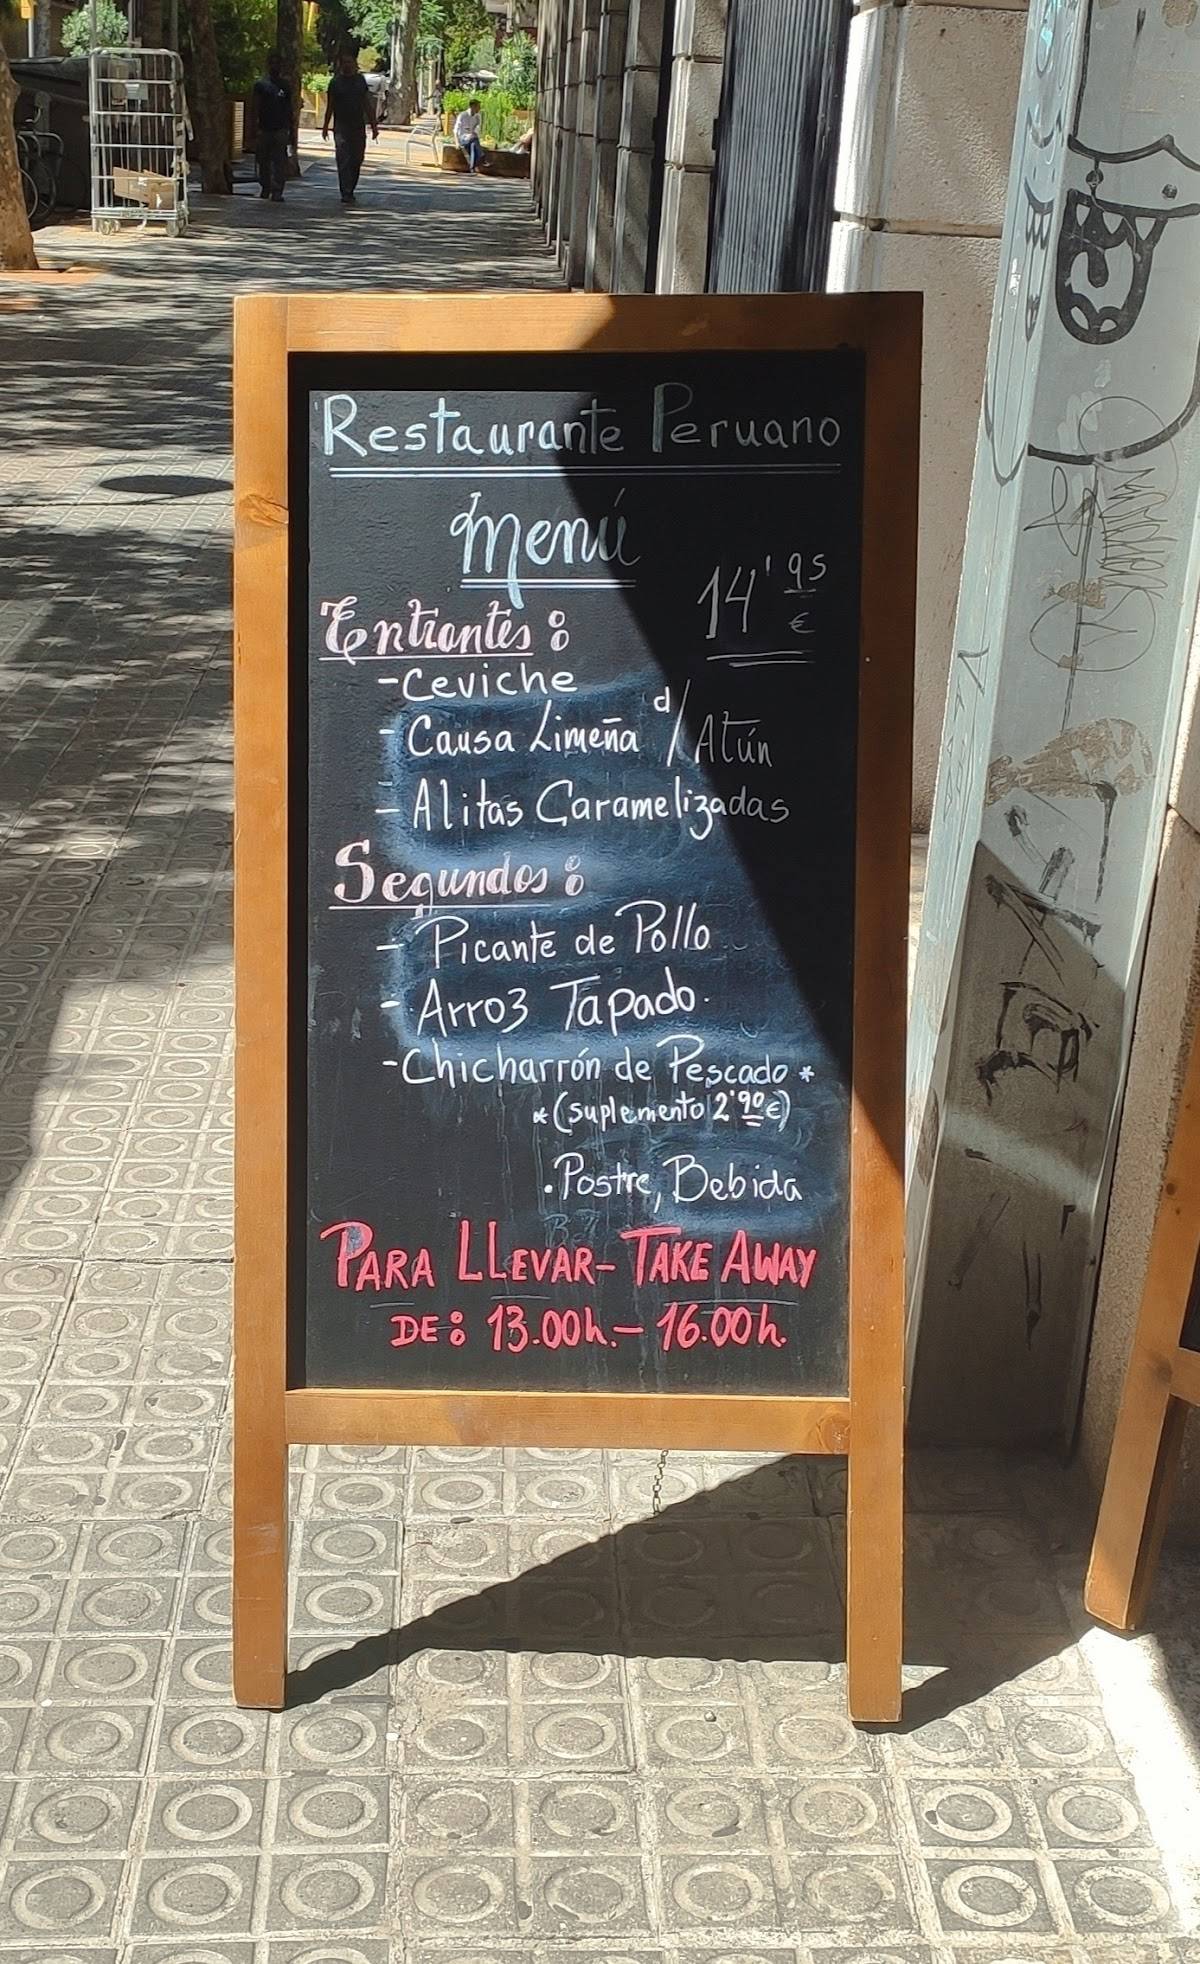 Restaurante Peruano
Menú
14'95
€
Entrantes:
-Ceviche
- Causa Limeña d/Atún
- Alitas Caramelizadas
Segundos:
- Picante de Pollo
- Arroz Tapado.
-Chicharrón de Pescado *
*(suplemento 2'90€)
. Postre, Bebida
PARA LLEVAR- TAKE AWAY
DE: 13.00h.- 16.00h.